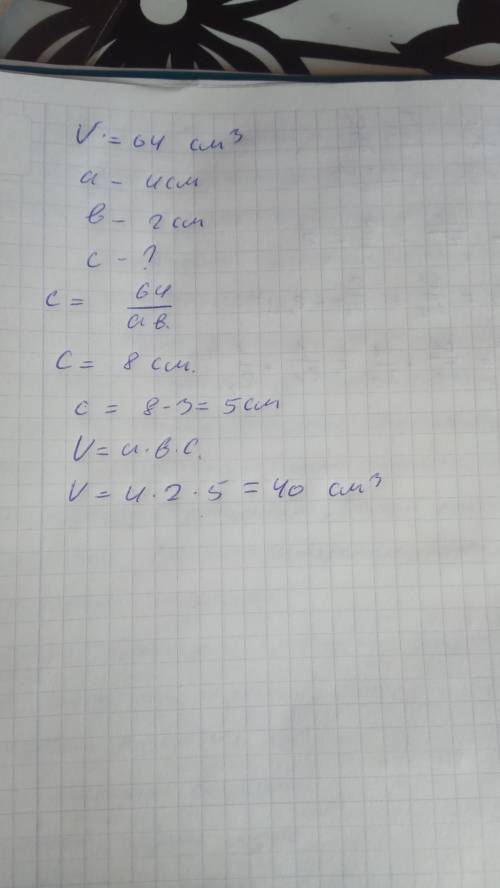 V = 64 см³
а - 4см
в - 2см
с - ?
с = 64/ав.
С = 8 см.
с = 8-3= 5см
V= а·в·с.
V = 4·2·5 = 40 см³